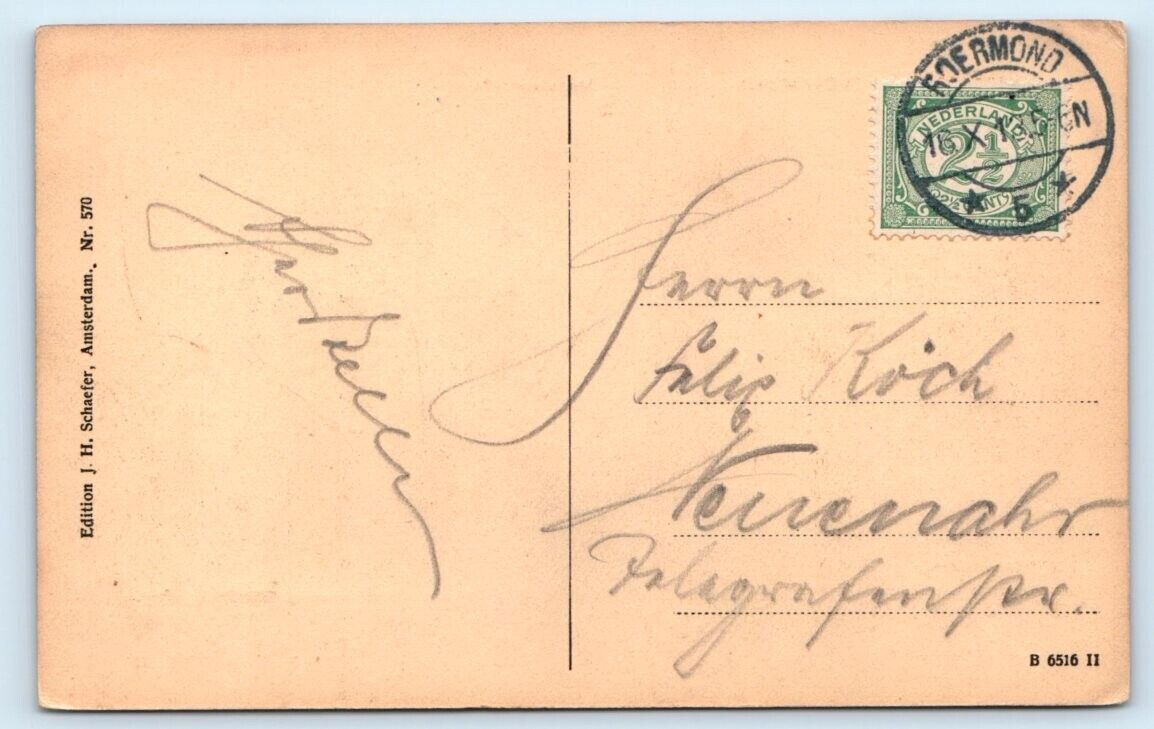 Edition J. H. Schaefer, Amsterdam. Nr. 570
ROERMOND
16 X 1
5
NEDERLAND
2½
2½ CENTS
Herrn
Felix Koch
Neuenahr
Telegrafenstr.
B 6516 II